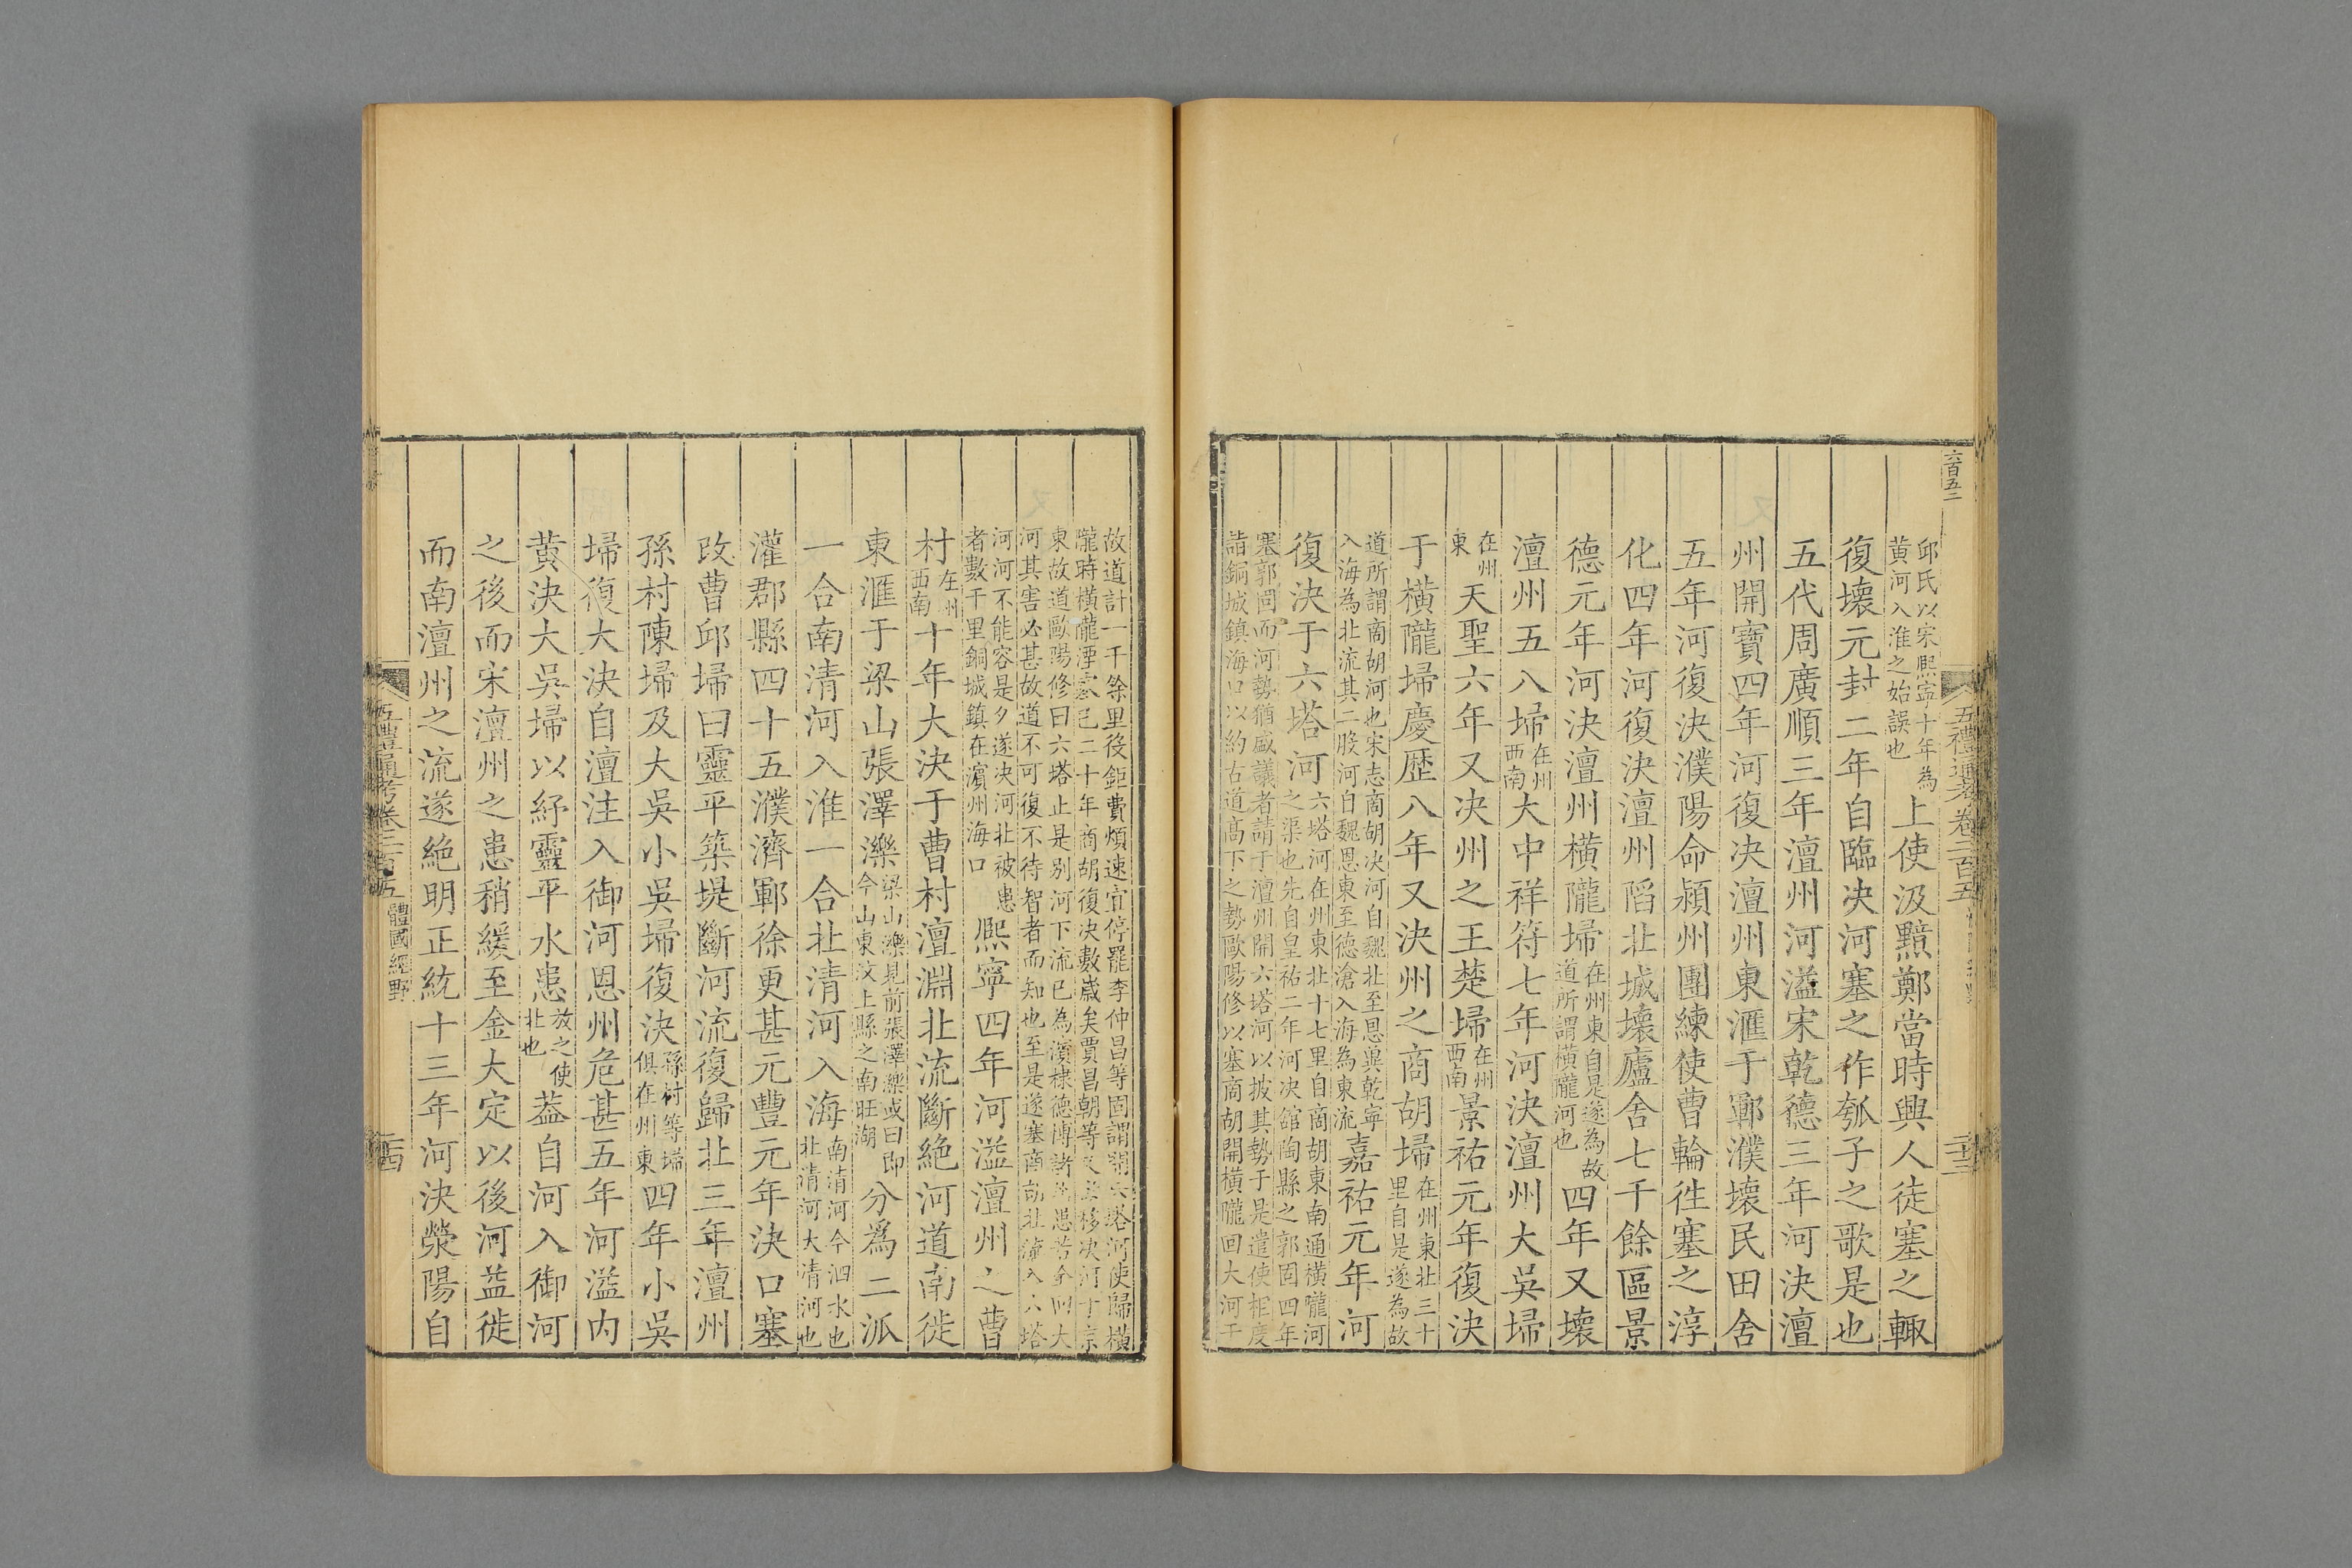 六百五二
五禮通考卷二百五
二十三
邱氏以宋熙寧十年為黃河入淮之始誤也上使汲黯鄭當時興人徒塞之輒
復壞元封二年自臨決河塞之作瓠子之歌是也
五代周廣順三年澶州河溢宋乾德三年河決澶
州開寶四年河復決澶州東滙于鄆濮壞民田舍
五年河復決濮陽命潁州團練使曹輪徃塞之淳
化四年河復決澶州䧟北城壞廬舍七千餘區景
德元年河決澶州橫隴埽在州東自是遂為故道所謂橫隴河也四年又壞
澶州五八埽在州西南大中祥符七年河決澶州大吳埽
在州東天聖六年又決州之王楚埽在州西南景祐元年復決
于橫隴埽慶歷八年又決州之商胡埽在州東北三十里自是遂為故
道所謂商胡河也宋志商胡決河自魏北至恩冀乾寧入海為北流其二股河自魏恩東至德滄入海為東流嘉祐元年河
復決于六塔河六塔河在州東北十七里自商胡東南通橫隴河之渠也先自皇祐二年河決館陶縣之郭固四年
塞郭固而河勢猶盛議者請于澶州開六塔河以披其勢于是遣使相度詣銅城鎮海口以約古道高下之勢歐陽修以塞商胡開橫隴回大河于
故道計一千餘里後鉅費煩速宜停罷李仲昌等固謂開六塔河使歸橫隴時橫隴湮塞已二十年商胡復決數歲矣賈昌朝等
東故道歐陽修曰六塔止是別河下流已為濱棣德博諸州患若分四大河其害必甚故道不可復不待智者而知也至是遂塞商胡北流入六塔
河河不能容是夕遂決河北被患者數千里銅城鎮在濱州海口熙寧四年河溢澶州之曹
村在州西南十年大決于曹村澶淵北流斷絶河道南徙
東滙于梁山張澤濼梁山濼見前張澤濼或曰即今山東汶上縣之南旺湖分爲二派
一合南清河入淮一合北清河入海南清河今泗水也北清河大清河也
灌郡縣四十五濮濟鄆徐更甚元豐元年決口塞
改曹邱埽曰靈平築堤斷河流復歸北三年澶州
孫村陳埽及大吳小吳埽復決孫村等埽俱在州東四年小吳
埽復大決自澶注入御河恩州危甚五年河溢内
黃決大吳埽以紓靈平水患放之使北也葢自河入御河
之後而宋澶州之患稍緩至金大定以後河益徙
而南澶州之流遂絶明正統十三年河決滎陽自
五禮通考卷二百五
體國經野
二十四